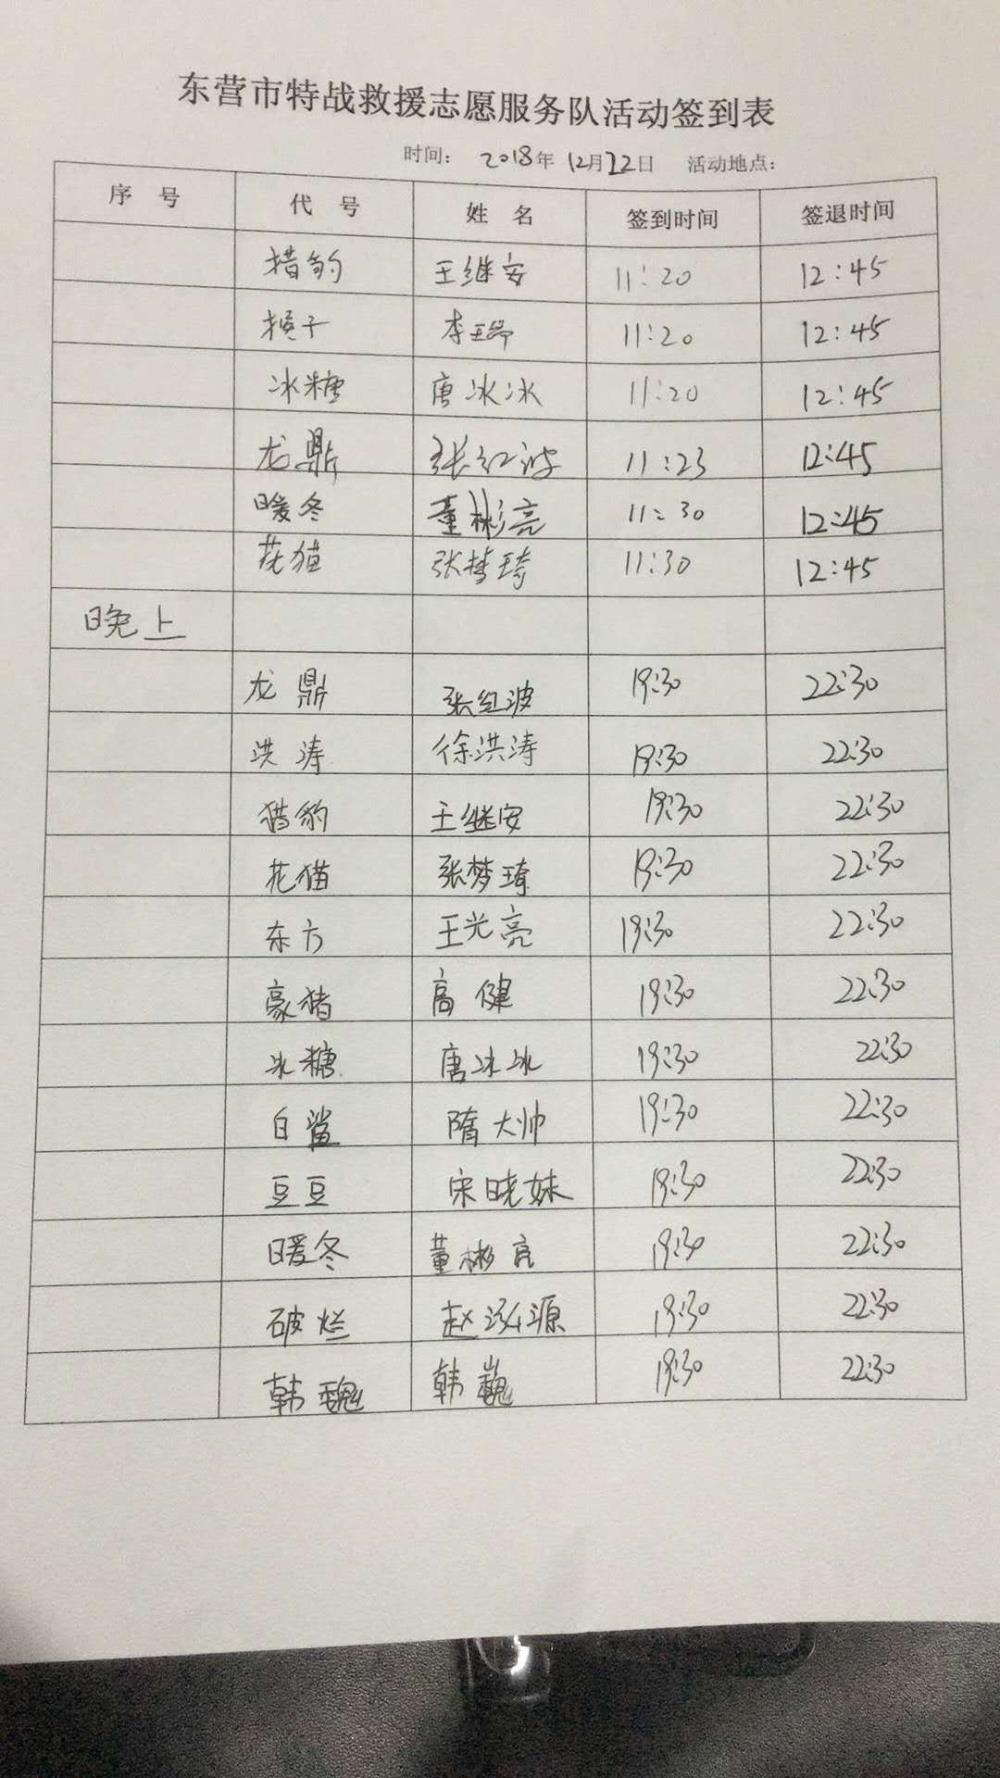 东营市特战救援志愿服务队活动签到表
时间: 2018年 12月22日 活动地点:
序 号 代 号 姓 名 签到时间 签退时间
猎豹 王继安 11:20 12:45
李 11:20 12:45
冰糖 唐冰冰 11:20 12:45
龙鼎 张红波 11:23 12:45
暖冬 董彬亮 11:30 12:45
花猫 张梦琦 11:30 12:45
晚上
龙鼎 张红波 19:30 22:30
洪涛 徐洪涛 19:30 22:30
猎豹 王继安 19:30 22:30
花猫 张梦琦 19:30 22:30
东方 王光亮 19:30 22:30
豪猪 高健 19:30 22:30
冰糖 唐冰冰 19:30 22:30
白鲨 隋大帅 19:30 22:30
豆豆 宋晓妹 19:30 22:30
暖冬 董彬亮 19:30 22:30
破烂 赵泓源 19:30 22:30
韩巍 韩巍 19:30 22:30